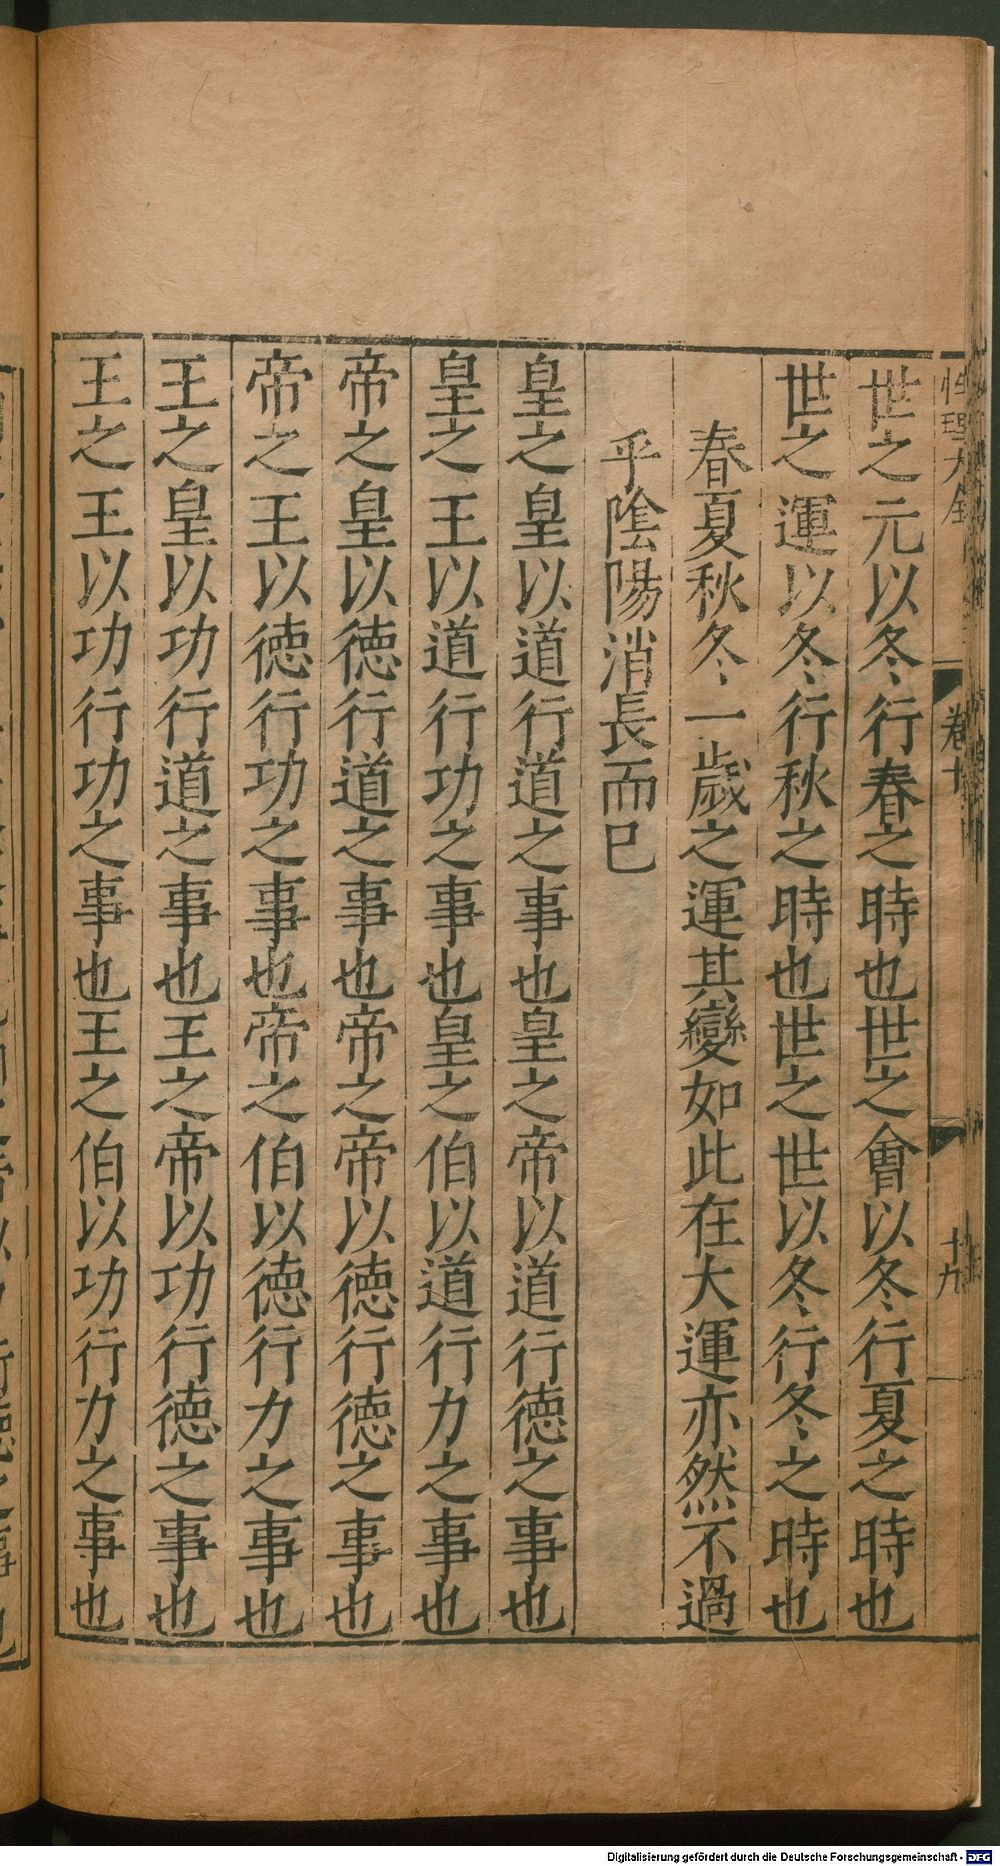 性理大全 卷十 十九
世之元以冬行春之時也世之會以冬行夏之時也
世之運以冬行秋之時也世之世以冬行冬之時也
春夏秋冬一歲之運其變如此在大運亦然不過
乎陰陽消長而已
皇之皇以道行道之事也皇之帝以道行德之事也
皇之王以道行功之事也皇之伯以道行力之事也
帝之皇以德行道之事也帝之帝以德行德之事也
帝之王以德行功之事也帝之伯以德行力之事也
王之皇以功行道之事也王之帝以功行德之事也
王之王以功行功之事也王之伯以功行力之事也
Digitalisierung gefördert durch die Deutsche Forschungsgemeinschaft - DFG